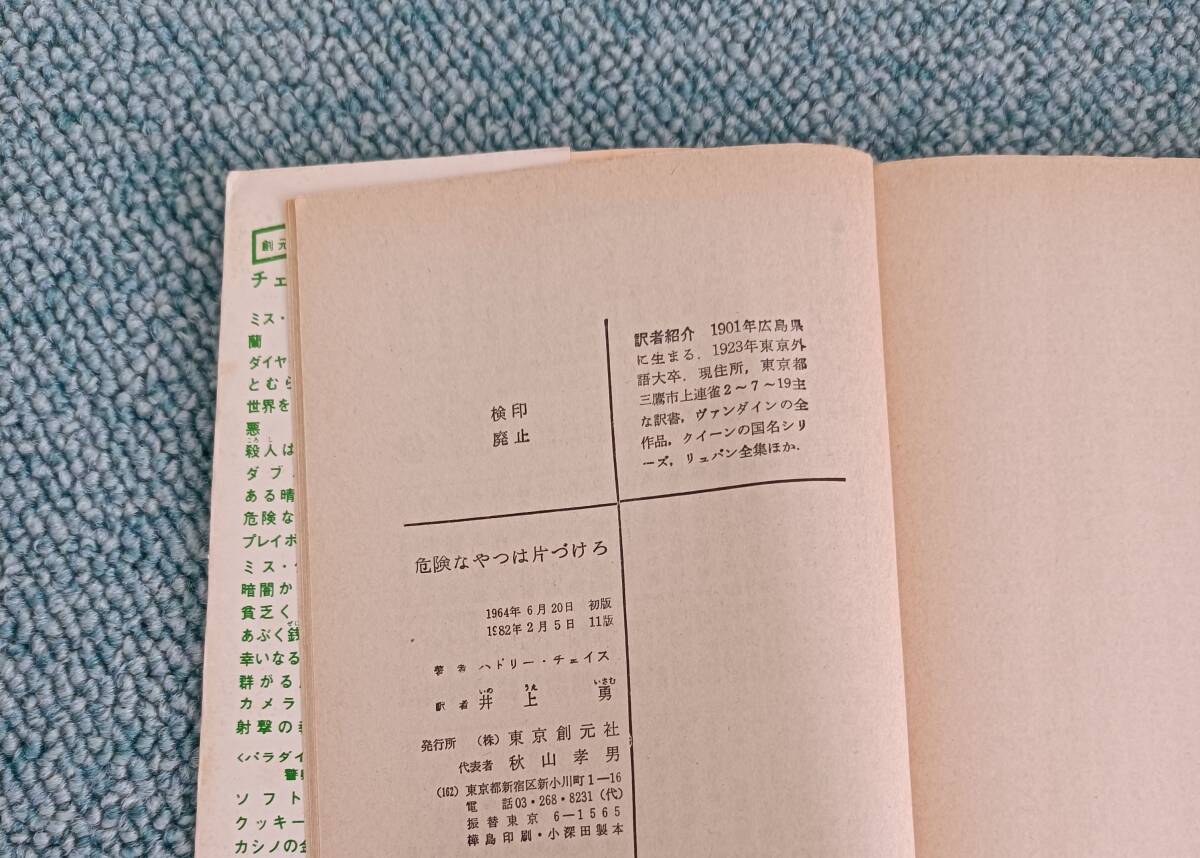 創元
チェ
ミス・
蘭
ダイヤ
とむら
世界を
悪
殺人は
ころし
ダブ
ある晴
危険な
プレイボ
ミス・
暗闇か
貧乏く
あぶく銭
ぜに
幸いなる
群がる
カメラ
射撃の
<パラダイ
ソフト
クッキー
カシノの金
検印
廃止
訳者紹介 1901年広島県
に生まる．1923年東京外
語大卒．現住所，東京都
三鷹市上連雀2〜7〜19主
な訳書，ヴァンダインの全
作品，クイーンの国名シリ
ーズ，リュパン全集ほか．
危険なやつは片づけろ
1964年6月20日 初版
1982年2月5日 11版
著者 ハドリー・チェイス
いの うえ いさむ
訳者 井上 勇
発行所 （株）東京創元社
代表者 秋山孝男
(162) 東京都新宿区新小川町1—16
電話03・268・8231（代）
振替東京 6—1565
樺島印刷・小深田製本